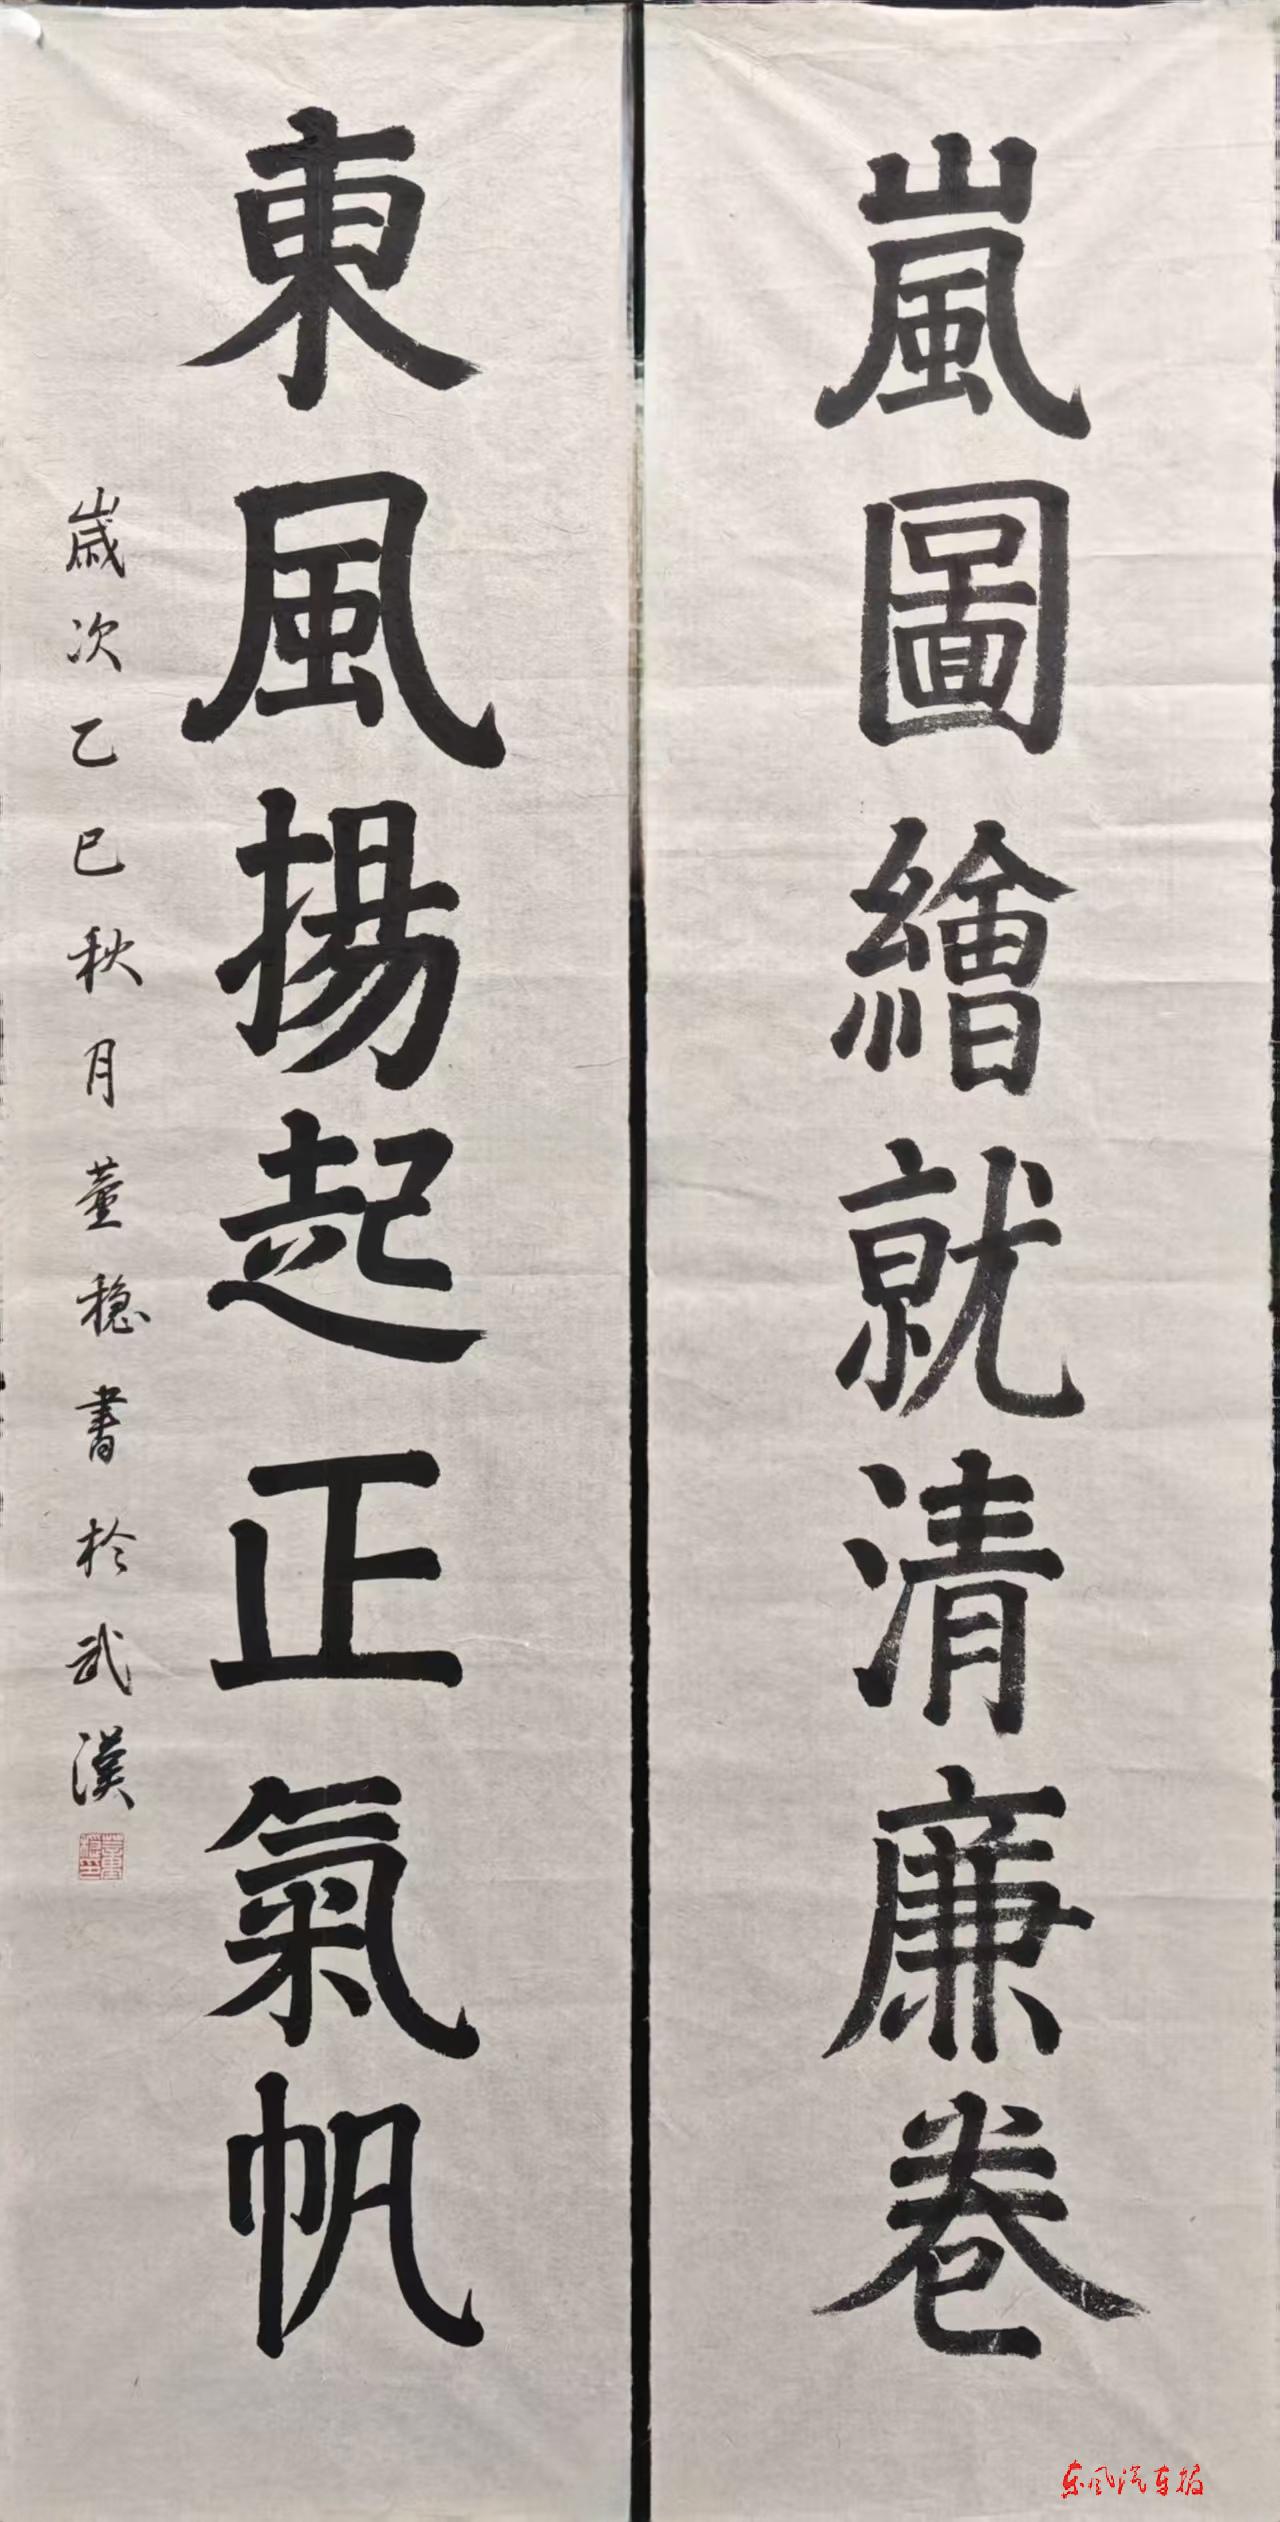 嵐圖繪就清廉卷
東風揚起正氣帆
歲次乙巳秋月董穩書於武漢
东风汽车报